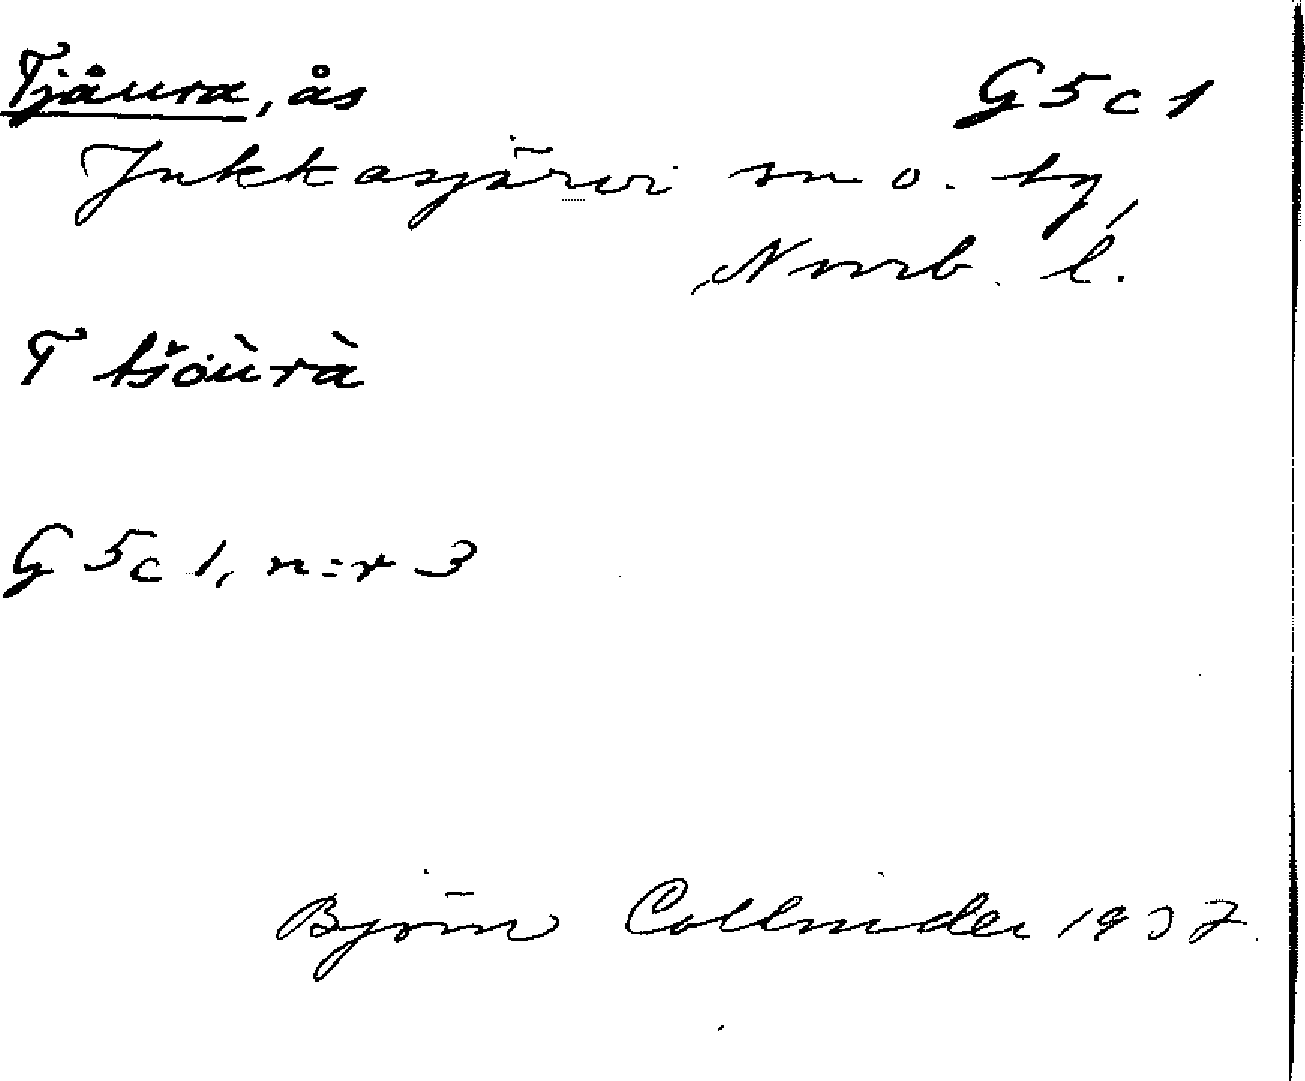 Tjåura, ås G 5 c 1
Jukkasjärvi sn o. by,
Norrb. l.
T tšou̇̀rà
G 5 c 1, n:r 3
Björn Collinder 1937